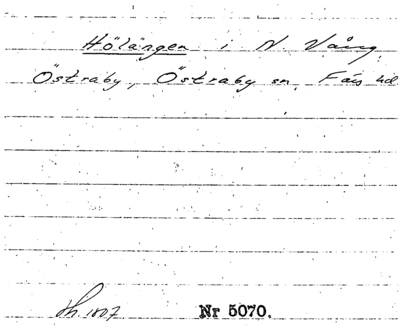 Hölängen i N. Vång
Östraby, Östraby sn, Färs hd
1807 Nr 5070.